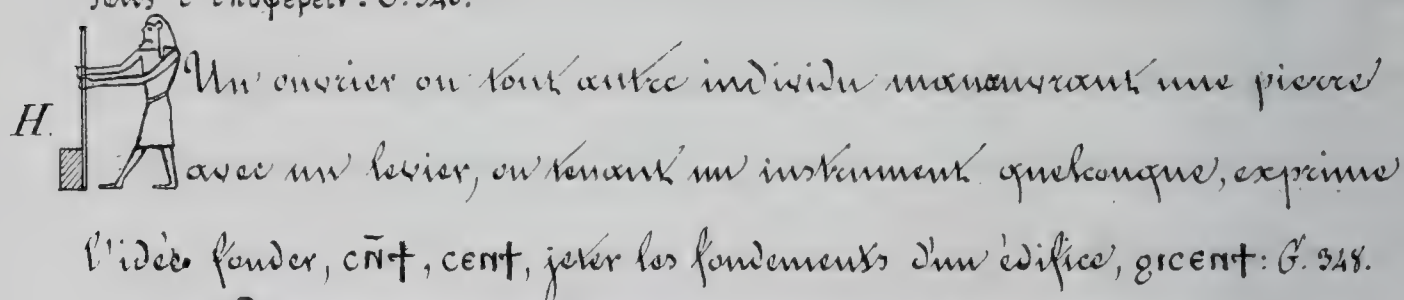 H. Un ouvrier ou tout autre individu manœuvrant une pierre
avec un levier, ou tenant un instrument quelconque, exprime
l'idée fonder, ⲥⲛ̄ϯ, ⲥⲉⲛϯ, jeter les fondements d'un édifice, ϩⲓⲥⲉⲛϯ: G. 348.